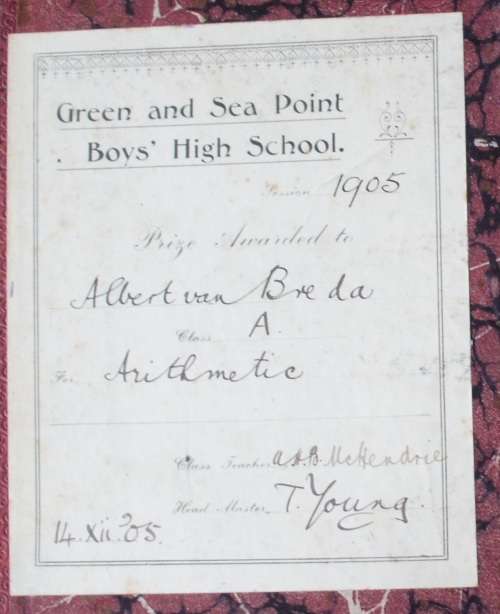 Green and Sea Point
. Boys' High School.
Session 1905
Prize Awarded to
Albert van Breda
Class A.
For Arithmetic
Class Teacher A.B. McHendrie
Head Master, T. Young.
14.xii.05